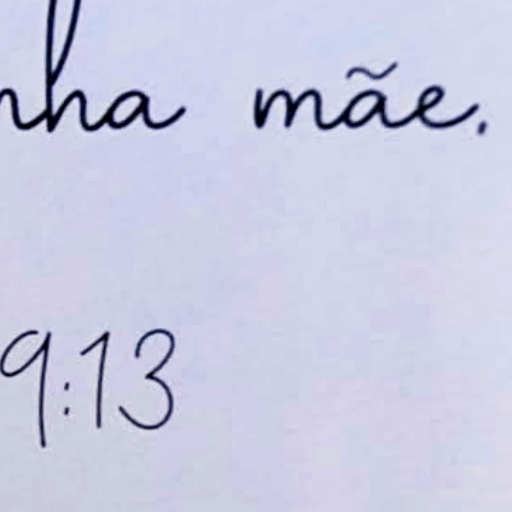 nha mãe.
9:13